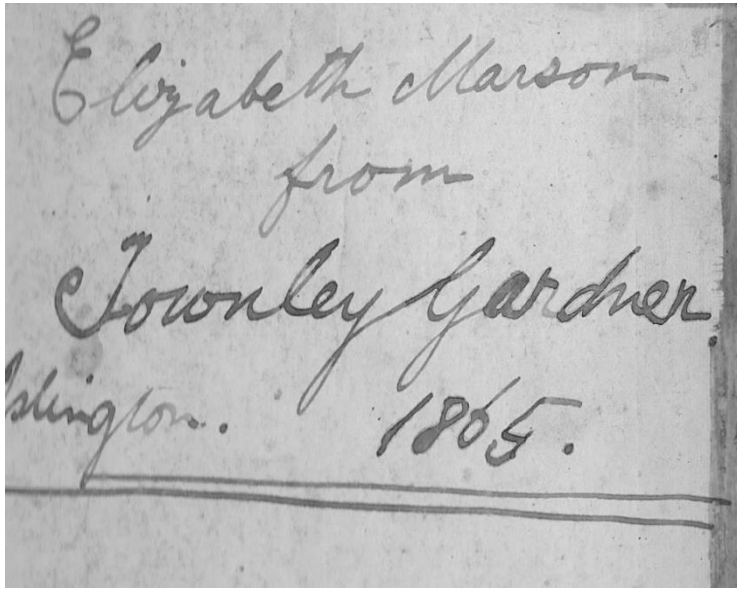 Elizabeth Marson
from
Townley Gardner.
Islington. 1865.